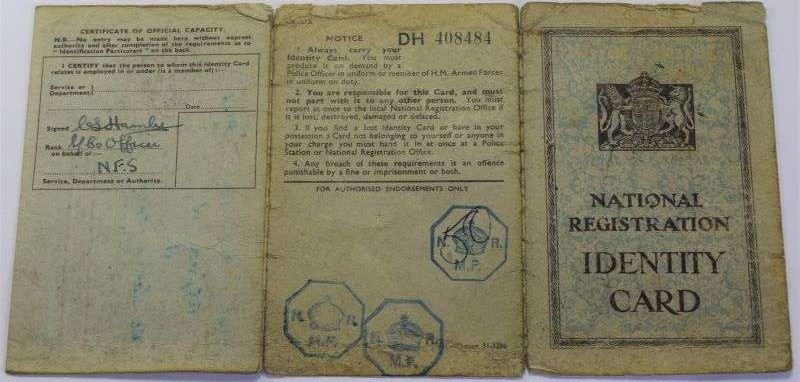 CERTIFICATE OF OFFICIAL CAPACITY.
N.B.—No entry may be made here without express
authority and after completion of the requirements as to
"Identification Particulars" on the back.
I CERTIFY that the person to whom this Identity Card
relates is employed in or under (is a member of) :—
Service or
Department:
Date
Signed
Rank Officer
on behalf of
N.F.S
Service, Department or Authority.
NOTICE
DH 408484
1. Always carry your
Identity Card. You must
produce it on demand by a
Police Officer in uniform or member of H.M. Armed Forces
in uniform on duty.
2. You are responsible for this Card, and must
not part with it to any other person. You must
report at once to the local National Registration Office if
it is lost, destroyed, damaged or defaced.
3. If you find a lost Identity Card or have in your
possession a Card not belonging to yourself or anyone in
your charge you must hand it in at once at a Police
Station or National Registration Office.
4. Any breach of these requirements is an offence
punishable by a fine or imprisonment or both.
FOR AUTHORISED ENDORSEMENTS ONLY
N. R.
M.F.
N. R.
M.F.
N. R.
M.F.
NATIONAL
REGISTRATION
IDENTITY
CARD